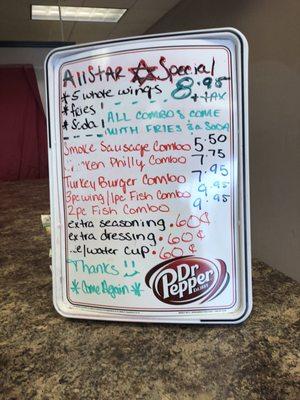 AllStar Special
*5 whole wings 8.95
*fries! + TAX
*Soda! ALL COMBO'S COME
WITH FRIES & a SODA
Smoke Sausage Combo 5.50
Philly Combo 7.75
Turkey Burger Combo 7.95
3pc wing/1pc Fish Combo 9.95
2pc Fish Combo 9.95
extra seasoning .60¢
extra dressing .60¢
water cup .60¢
Thanks
*Come Again*
Dr Pepper